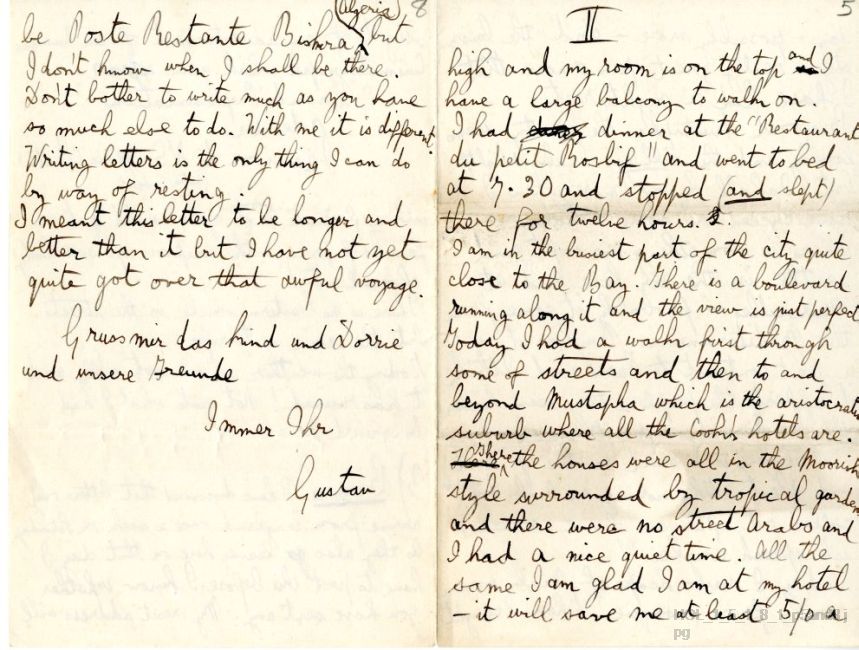 8
(Algeria)
be Poste Restante Biskra, but
I don't know when I shall be there.
Don't bother to write much as you have
so much else to do. With me it is different.
Writing letters is the only thing I can do
by way of resting.
I meant this letter to be longer and
better than it but I have not yet
quite got over that awful voyage.
Gruss mir das kind und Dorrie
und unsere Freunde
Immer Ihr
Gustav
5
II
high and my room is on the top and I
have a large balcony to walk on
I had dinner at the "Restaurant
du petit Rosbif" and went to bed
at 7.30 and stopped (and slept)
there for twelve hours.
I am in the busiest part of the city quite
close to the Bay. There is a boulevard
running along it and the view is just perfect
Today I had a walk first through
some of streets and then to and
beyond Mustapha which is the aristocratic
suburb where all the Cook's hotels are.
There the houses were all in the Moorish
style surrounded by tropical gardens
and there were no street Arabs and
I had a nice quiet time. All the
same I am glad I am at my hotel
– it will save me at least 5/0 a
pg